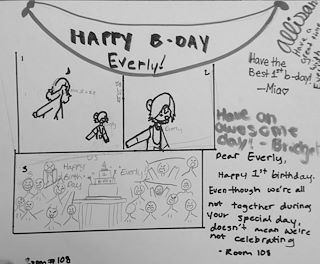 HAPPY B-DAY
Everly!
Allison
Have a
great
Have the
Best 1st b-day!
—Mia♡
Have an
awesome
day! - Bridget
1
2
3
US
Happy
Birth
Day
Everly
Dear Everly,
Happy 1st birthday.
Even though we're all
not together during
your special day,
doesn't mean we're
not celebrating
- Room 108
Room #108